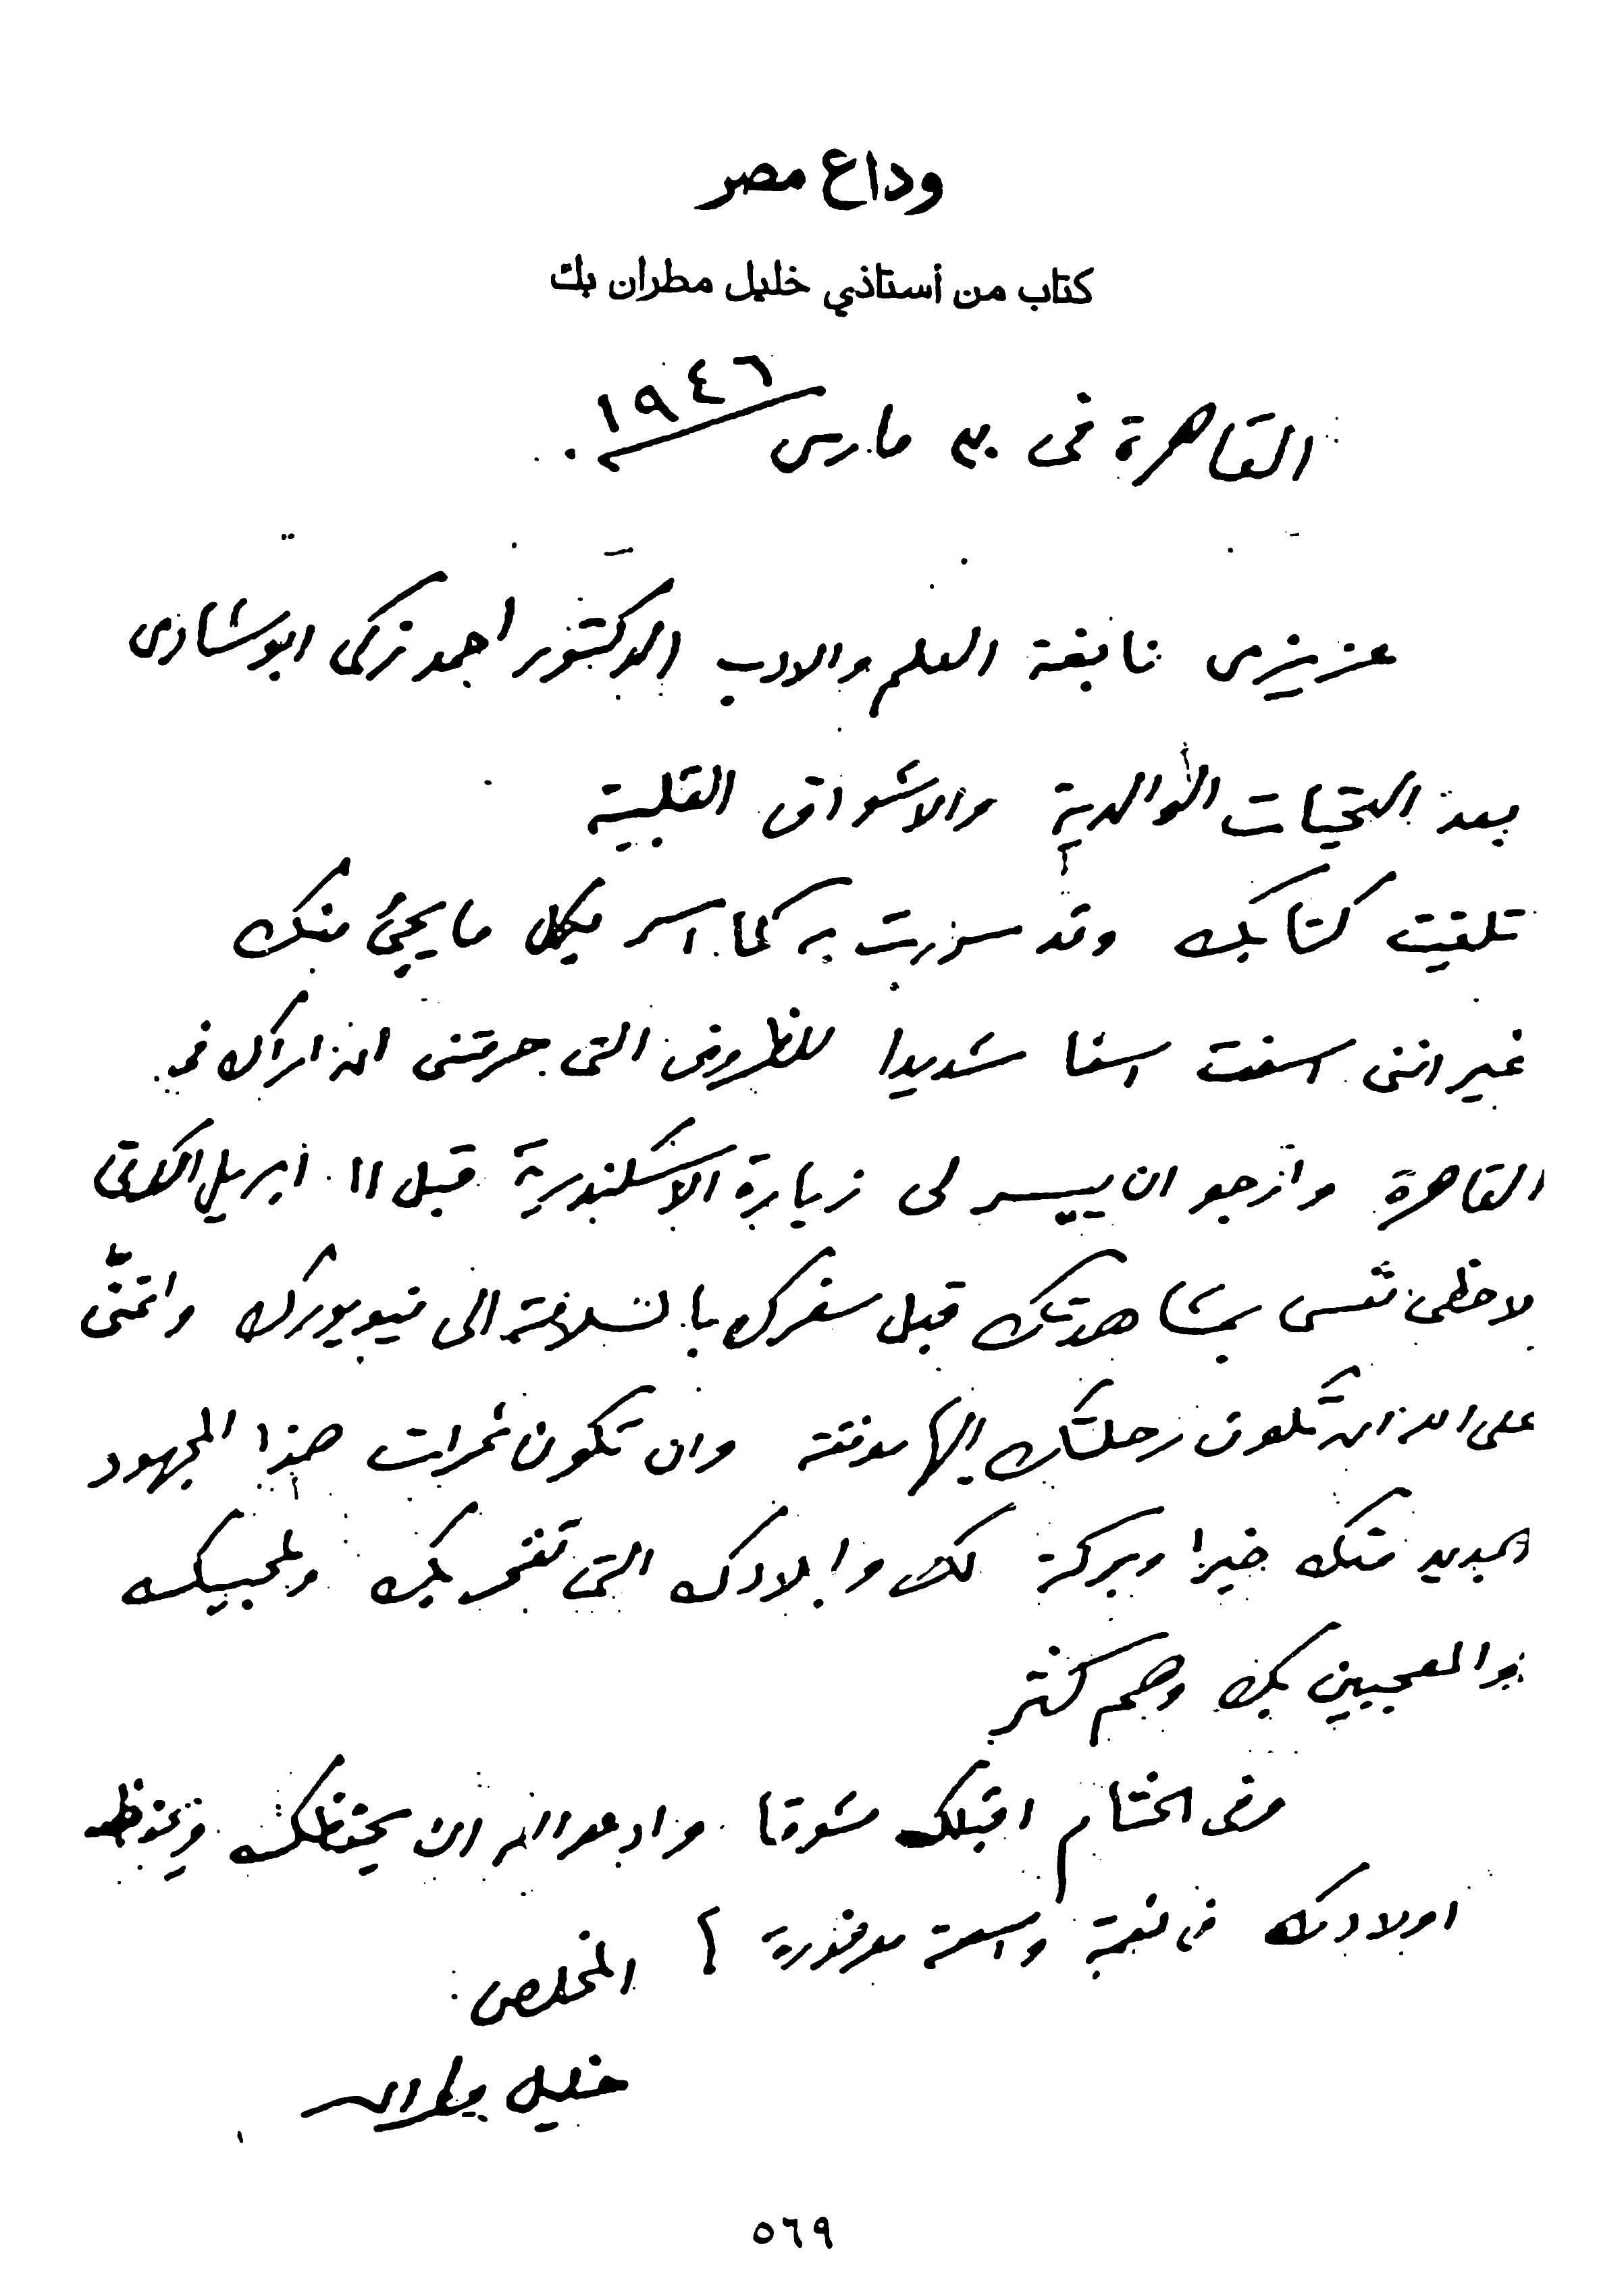 وداع مصر
كتاب من أستاذي خليل مطران بك
القاهرة فى ٣٠ مارس ١٩٤٦
عزيزى نابغة العلم والادب الدكتور احمد زكى ابو شادى
بعد التحيات الوالدية والاشواق القلبية
تلقيت كتابك وقد سررت به كما اسر بكل ما يجئ منك
غير اننى اسفت اسفا شديدا للظروف التى حرمتنى ان اراك فى
القاهرة وارجو ان ييسر لى زيارة الاسكندرية قبل ١١ ابريل الآتى
لاحظى نفسى بمشاهدتك قبل سفرك بالسلامة الى نيويورك واتمنى
على الله ان تكون رحلتك اليها موفقة وان تكون ثمرات هذا المجهود
الجديد منك خيرا وبركة لك ولبلادك التى تفخر بك ولمحبيك
والمعجبين بك وهم كثر
وفى الختام اقبلك شوقا وادعو الله ان يحفظك ويحفظ
اولادك فى نعمة واسعة موفورة
المخلص
خليل مطران
٥٦٩